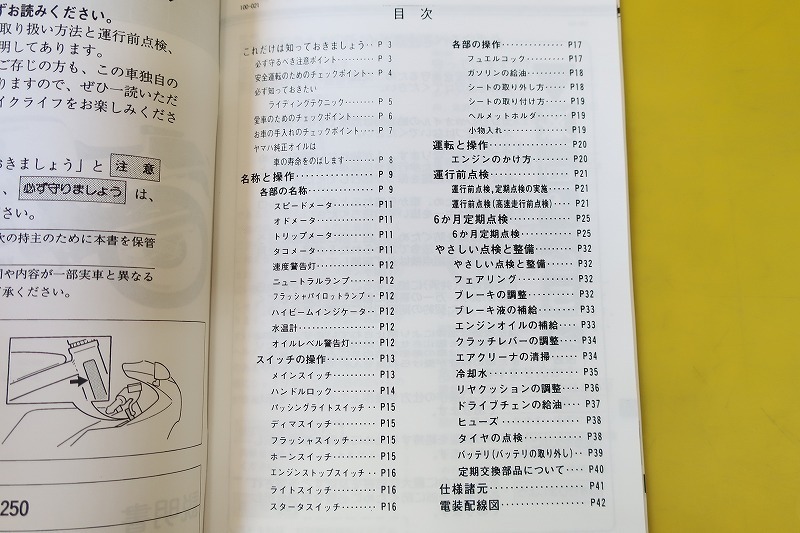 ずお読みください。
取り扱い方法と運行前点検、
明してあります。
ご存じの方も、この車独自の
りますので、ぜひ一読いただ
イクライフをお楽しみくださ
おきましょう」と 注意
、 必ず守りましょう は、
さい。
次の持主のために本書を保管
や内容が一部実車と異なる
承ください。
250
100-021
目次
これだけは知っておきましょう‥P 3
必ず守るべき注意ポイント‥‥‥P 3
安全運転のためのチェックポイント‥P 4
必ず知っておきたい
ライディングテクニック‥‥‥P 5
愛車のためのチェックポイント‥‥P 6
お車の手入れのチェックポイント‥‥P 7
ヤマハ純正オイルは
車の寿命をのばします‥‥‥P 8
名称と操作‥‥‥‥‥‥P 9
各部の名称‥‥‥‥‥‥P 9
スピードメータ‥‥‥‥P11
オドメータ‥‥‥‥‥‥P11
トリップメータ‥‥‥‥P11
タコメータ‥‥‥‥‥‥P11
速度警告灯‥‥‥‥‥‥P12
ニュートラルランプ‥‥‥P12
フラッシャパイロットランプ‥‥P12
ハイビームインジケータ‥‥P12
水温計‥‥‥‥‥‥‥‥P12
オイルレベル警告灯‥‥‥P12
スイッチの操作‥‥‥‥‥P13
メインスイッチ‥‥‥‥P13
ハンドルロック‥‥‥‥P14
パッシングライトスイッチ‥P15
ディマスイッチ‥‥‥‥P15
フラッシャスイッチ‥‥‥P15
ホーンスイッチ‥‥‥‥P15
エンジンストップスイッチ‥‥P16
ライトスイッチ‥‥‥‥P16
スタータスイッチ‥‥‥P16
各部の操作‥‥‥‥‥‥‥P17
フュエルコック‥‥‥‥‥P17
ガソリンの給油‥‥‥‥‥P18
シートの取り外し方‥‥‥P18
シートの取り付け方‥‥‥P19
ヘルメットホルダ‥‥‥‥P19
小物入れ‥‥‥‥‥‥‥P19
運転と操作‥‥‥‥‥‥‥P20
エンジンのかけ方‥‥‥‥P20
運行前点検‥‥‥‥‥‥‥P21
運行前点検,定期点検の実施‥‥P21
運行前点検(高速走行前点検)‥‥P21
6か月定期点検‥‥‥‥‥P25
6か月定期点検‥‥‥‥‥P25
やさしい点検と整備‥‥‥P32
やさしい点検と整備‥‥‥P32
フェアリング‥‥‥‥‥‥P32
ブレーキの調整‥‥‥‥‥P32
ブレーキ液の補給‥‥‥‥P33
エンジンオイルの補給‥‥P33
クラッチレバーの調整‥‥P34
エアクリーナの清掃‥‥‥P34
冷却水‥‥‥‥‥‥‥‥P35
リヤクッションの調整‥‥P36
ドライブチェンの給油‥‥P37
ヒューズ‥‥‥‥‥‥‥P38
タイヤの点検‥‥‥‥‥P38
バッテリ(バッテリの取り外し)‥‥P39
定期交換部品について‥‥P40
仕様諸元‥‥‥‥‥‥‥P41
電装配線図‥‥‥‥‥‥P42